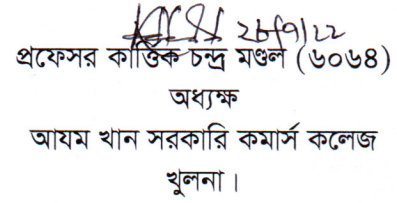 ২৮/৭/২২
প্রফেসর কার্ত্তিক চন্দ্র মণ্ডল (৬০৬৪)
অধ্যক্ষ
আযম খান সরকারি কমার্স কলেজ
খুলনা।